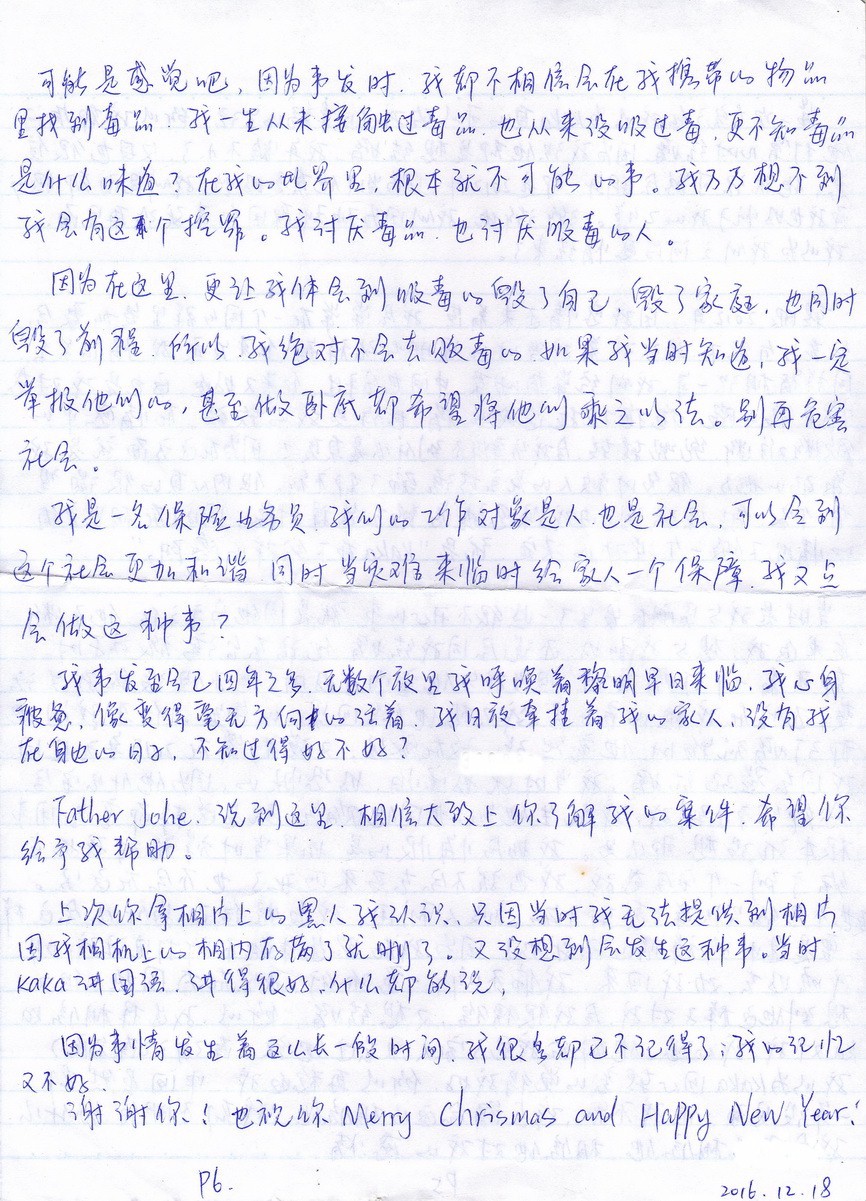 可能是感觉吧，因为事发时，我都不相信会在我携带的物品
里找到毒品，我一生从来接触过毒品，也从来没吸过毒，更不知毒品
是什么味道？在我的世界里，根本就不可能的事。我万万想不到
我会有这个控罪。我讨厌毒品，也讨厌吸毒的人。
因为在这里，更让我体会到吸毒的毁了自己，毁了家庭，也同时
毁了前程，所以，我绝对不会去贩毒的，如果我当时知道，我一定
举报他们的，甚至做卧底都希望将他们乘之以法。别再危害
社会。
我是一名保险业务员，我们的工作对象是人，也是社会，可以令到
这个社会更加和谐，同时当灾难来临时给家人一个保障，我又点
会做这种事？
我事发至今已四年之多，无数个夜里我呼唤着黎明早日来临，我心身
疲惫，像变得毫无方向的活着，我日夜牵挂着我的家人，没有我
在身边的日子，不知过得好不好？
Father Johe，说到这里，相信大致上你了解我的案件，希望你
给予我帮助。
上次你拿相片上的黑人我认识，只因当时我无法提供到相片
因我相机上的相内存满了就删了。又没想到会发生这种事。当时
kaka讲国语，讲得很好，什么都能说，
因为事情发生着这么长一段时间，我很多都已不记得了；我的记忆
又不好，
谢谢你！也祝你 Merry Chrismas and Happy New Year!
P6.
2016.12.18